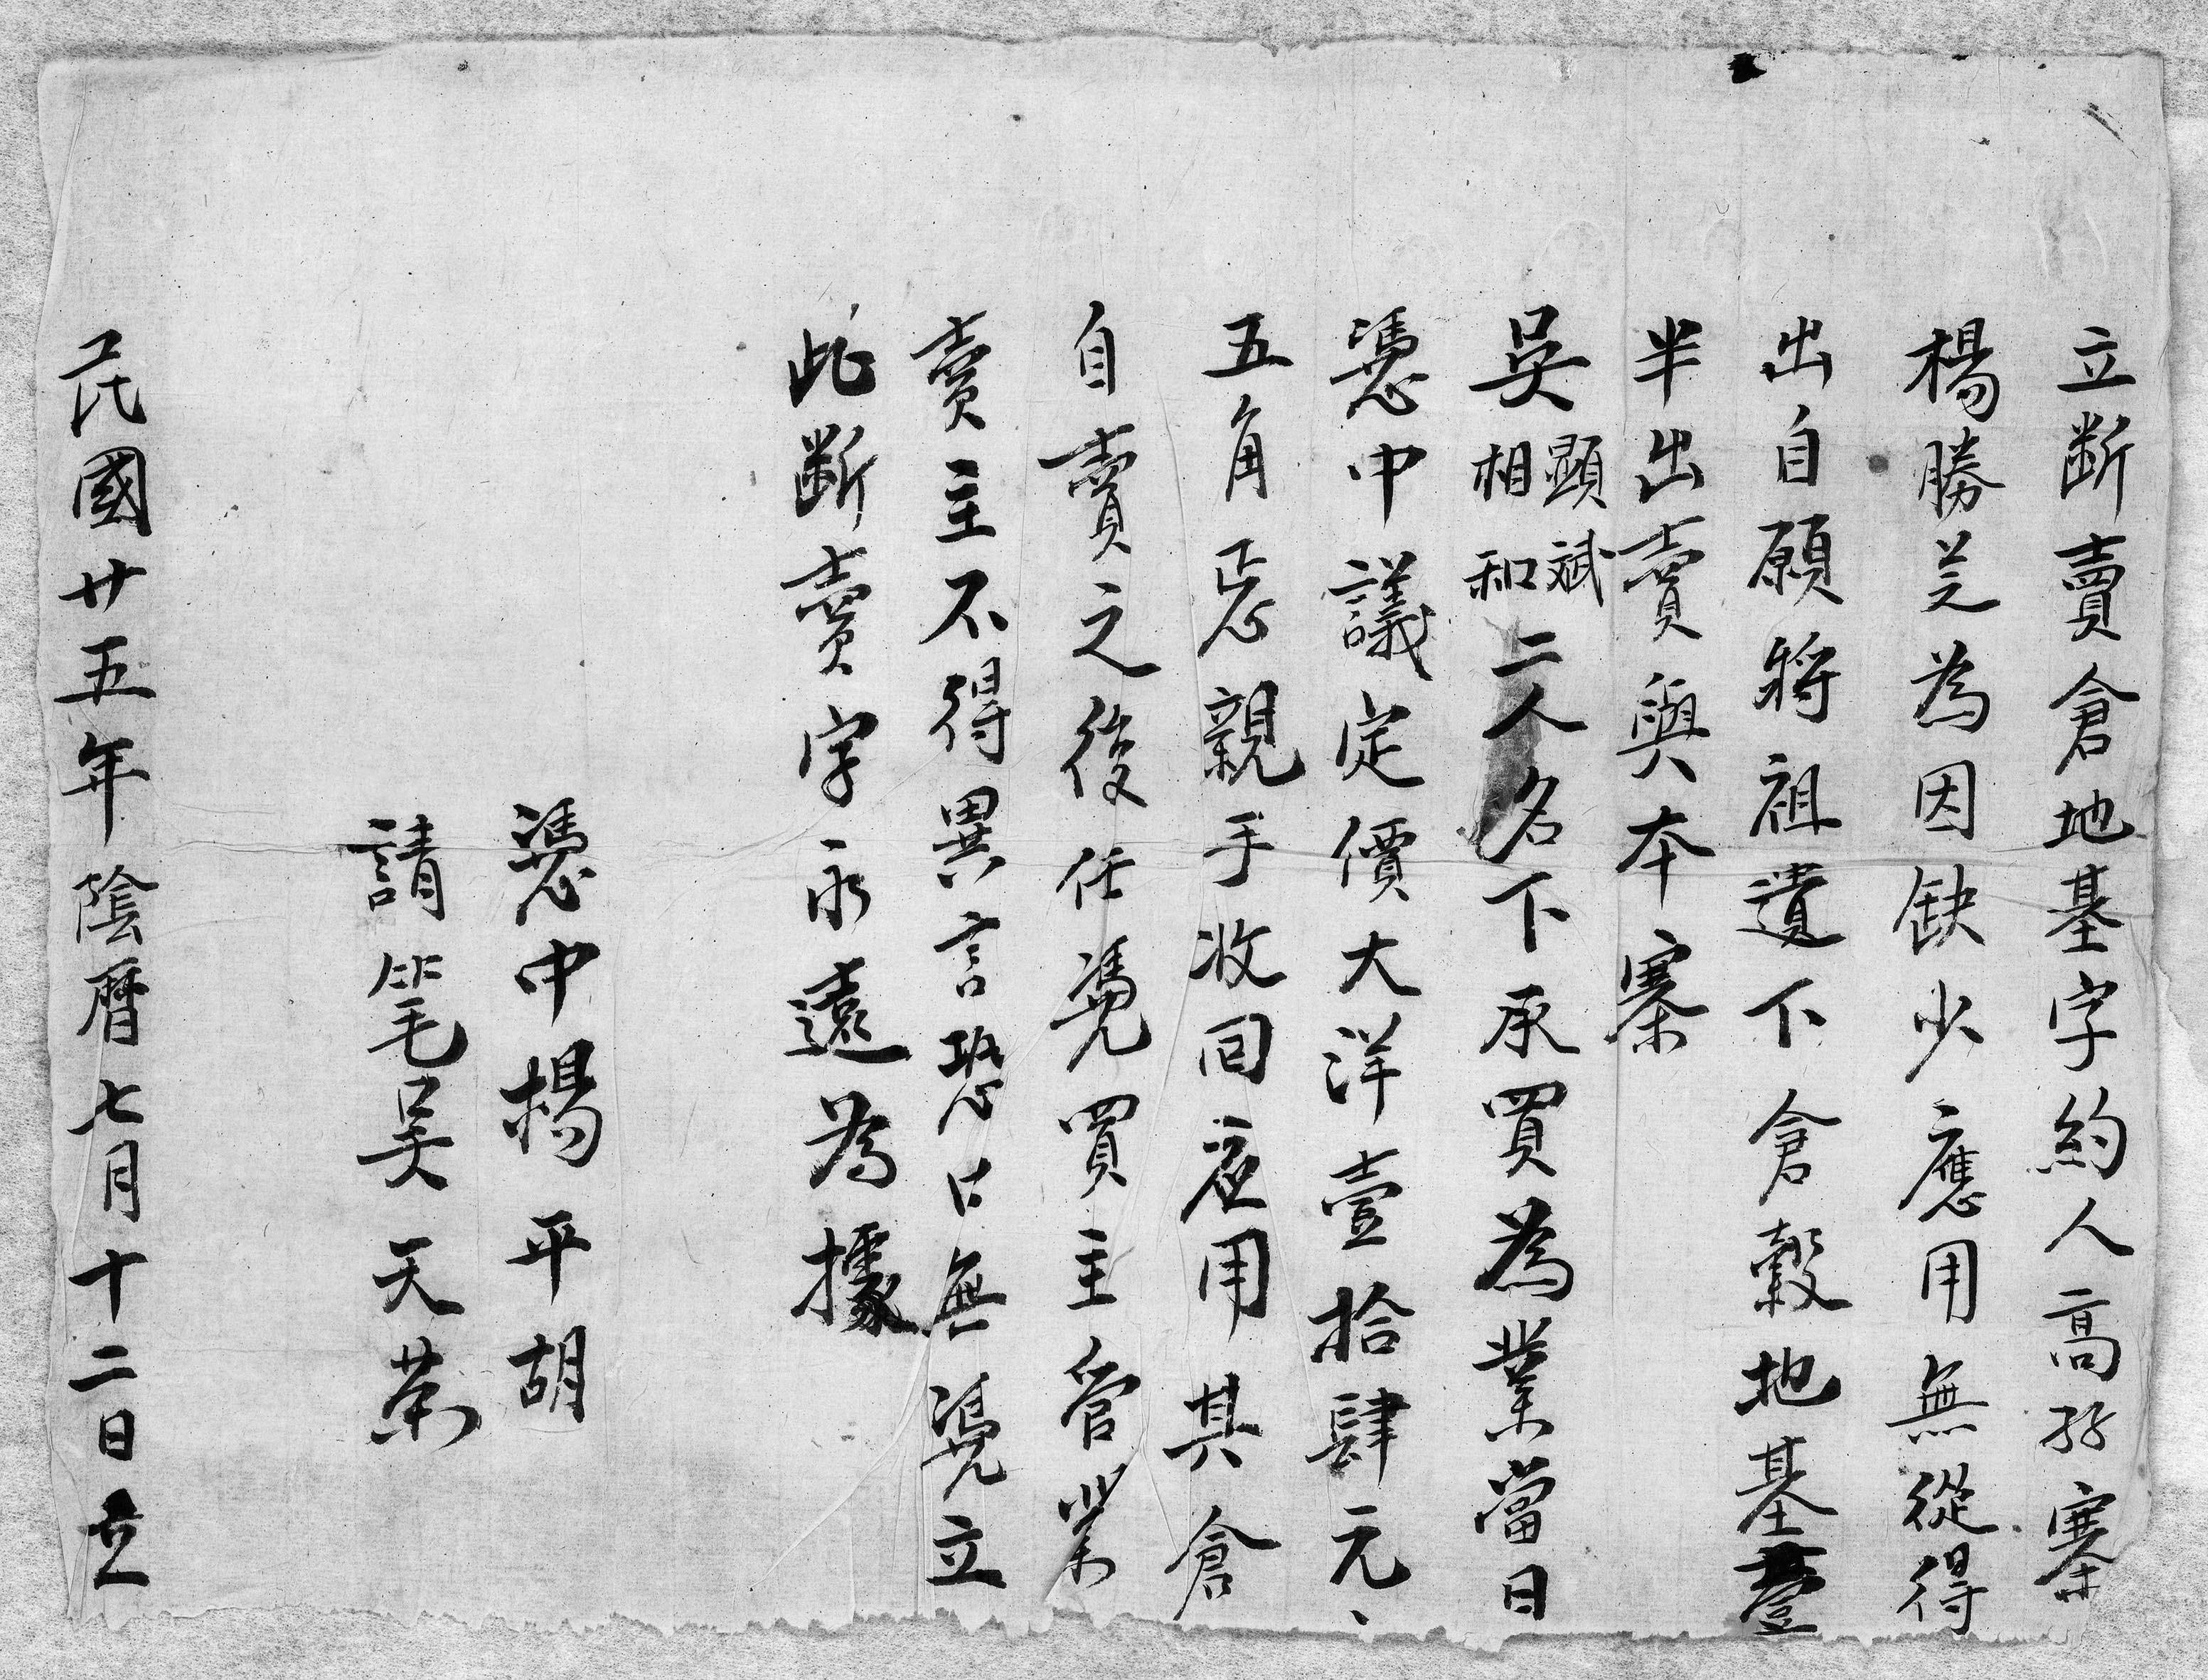 立断賣倉地基字約人高孖寨
楊勝芝為因缺少應用無從得
出自願將祖遺下倉穀地基壹
半出賣與本寨
吳顕斌相和二人名下承買為業當日
憑中議定價大洋壹拾肆元、
五角正親手收回應用其倉
自賣之後任凴買主管業
賣主不得異言恐口無凴立
此断賣字永遠為據
憑中楊平胡
請筆吴天榮
民國廿五年陰曆七月十二日立